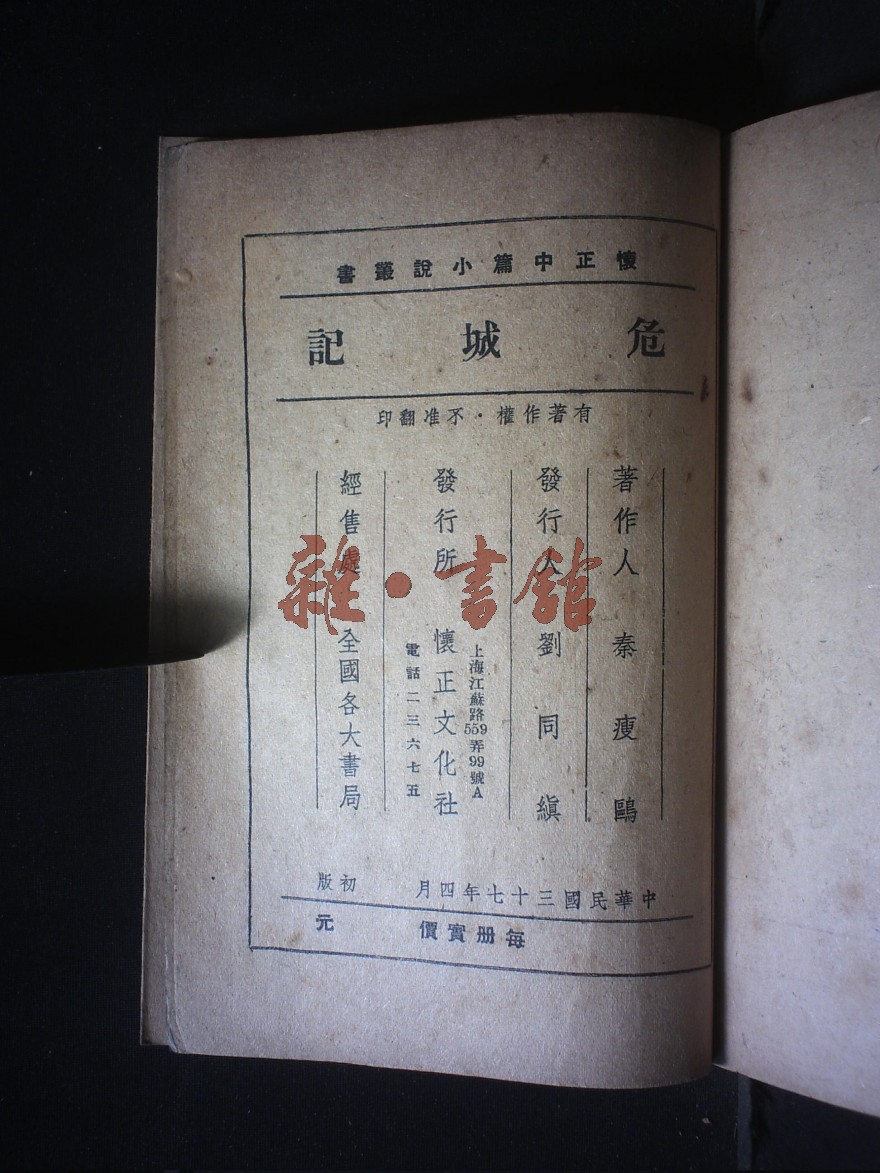 懷正中篇小說叢書
危城記
有著作權·不准翻印
著作人 秦瘦鷗
發行人 劉同縝
上海江蘇路559弄99號A
發行所 懷正文化社
電話二三六七五
經售處 全國各大書局
中華民國三十七年四月 初版
每册實價 元
雜·書館